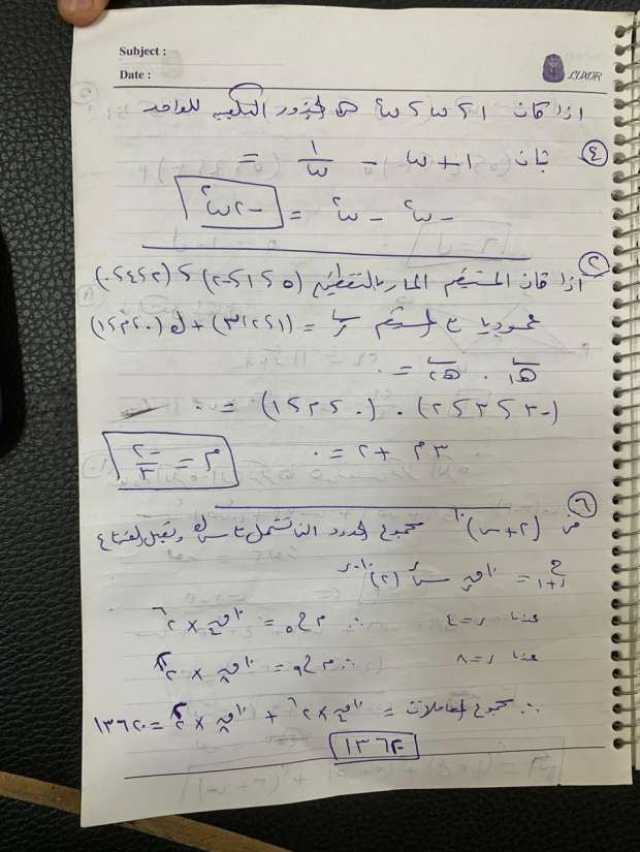 Subject :
Date :
اذا كانت ١ ، ω ، ω² هى الجذور التكعيبية للواحد
④ فإن ١ + ω - ١/ω =
- ω² - ω² = -٢ω²
② اذا كان المستقيم المار بالنقطتين (٥ ، ١ ، -٢) ، (٢ ، ٤ ، ٠)
عموديا على المستقيم ر = (١ ، ٢ ، -٣) + ك (٠ ، م ، ١)
هـ١ . هـ٢ = ٠
(-٣ ، ٣ ، ٢) . (٠ ، م ، ١) = ٠
٣م + ٢ = ٠ م = -٢/٣
⑥ فى (٢ + س)¹⁰ مجموع الحدود التى تشتمل على وتقبل القسمة
ح ر+١ = ¹⁰ق ر س^ر (٢)^١٠-ر
عندما ر = ٤ ∴ م ح٥ = ¹⁰ق٤ × ٢⁶
عندما ر = ٨ ∴ م ح٩ = ¹⁰ق٨ × ٢²
∴ مجموع المعاملات = ¹⁰ق٤ × ٢⁶ + ¹⁰ق٨ × ٢² = ١٣٦٢٠
١٣٦٢٠